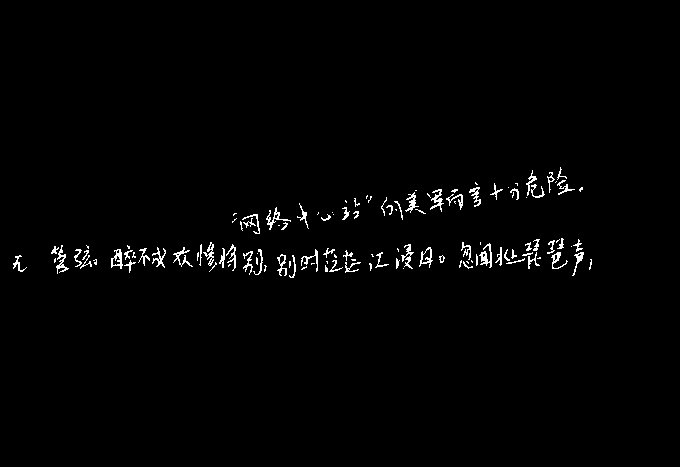 “网络中心站”的美军而言十分危险。
无 管弦。醉不成欢惨将别,别时茫茫江浸月。忽闻水上琵琶声,